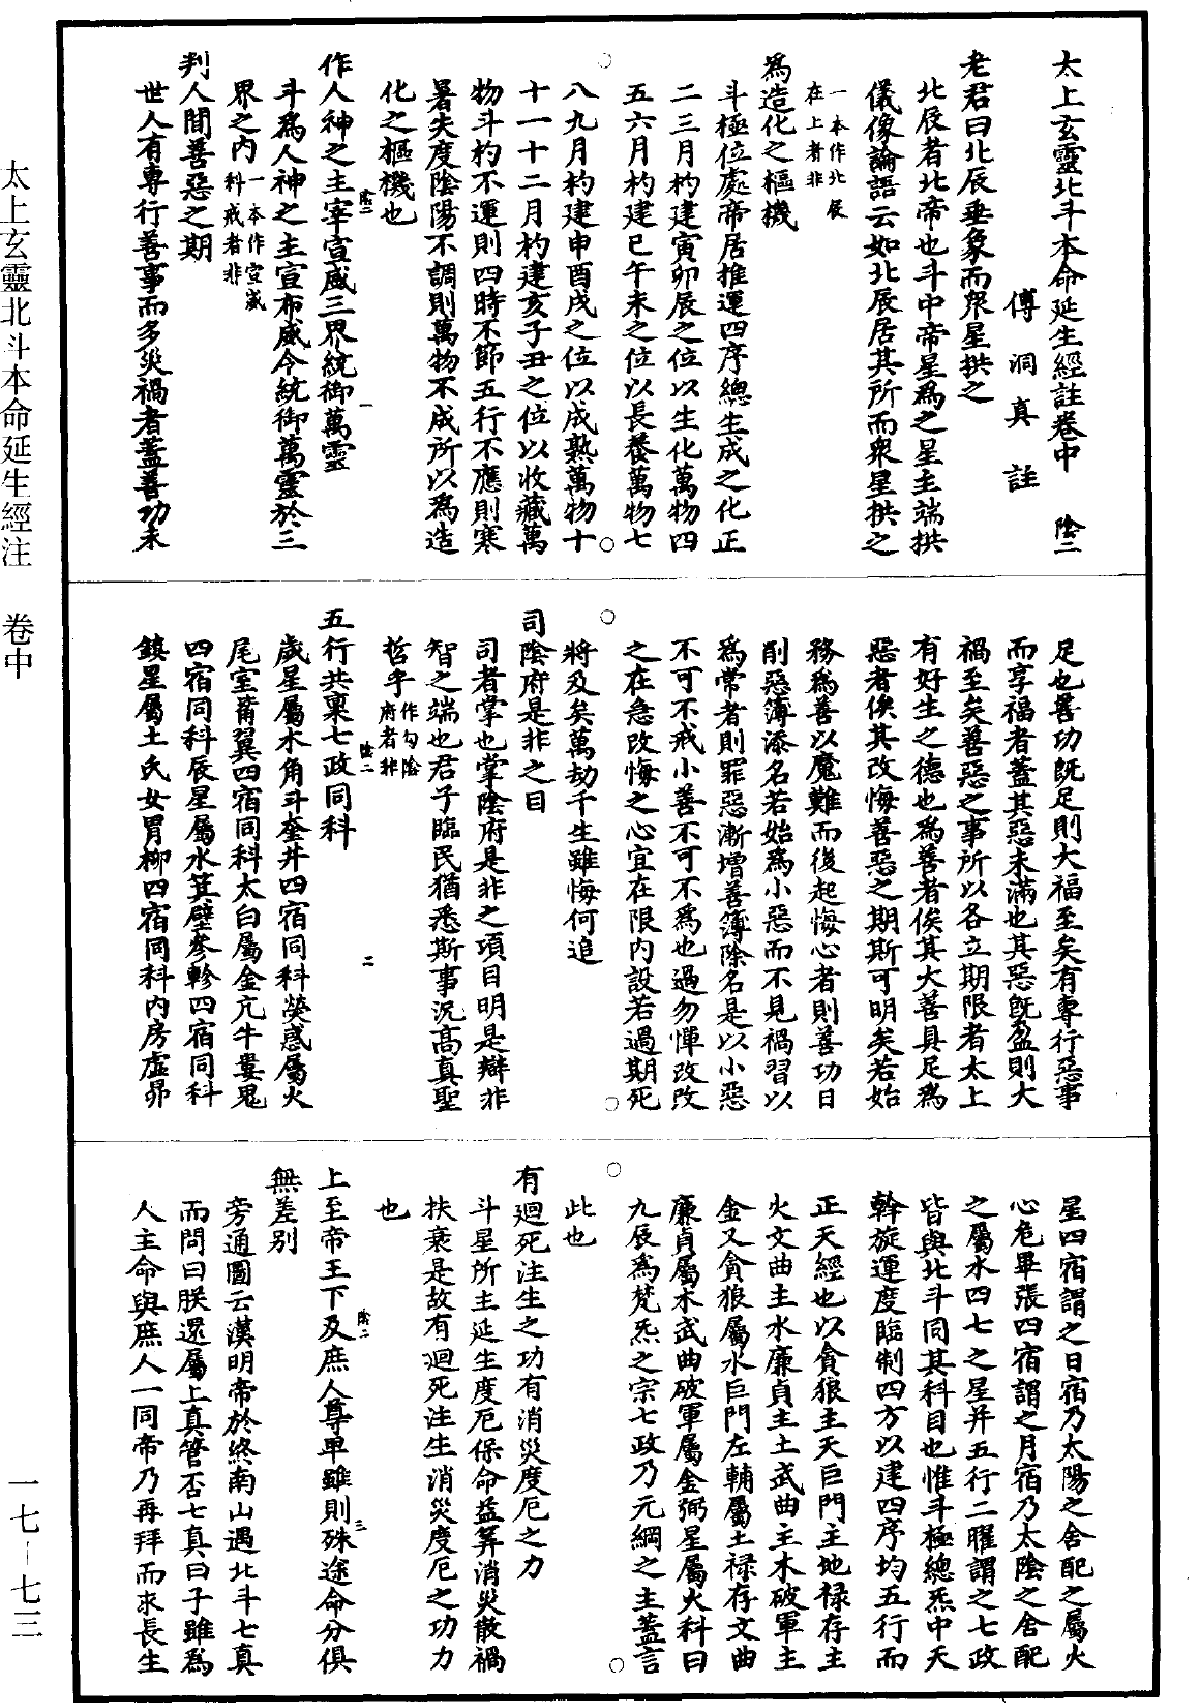 太上玄靈北斗本命延生經註卷中　陰二
傅洞真註
老君曰北辰垂象而衆星拱之
北辰者北帝也斗中帝星爲之星主端拱
儀像論語云如北辰居其所而衆星拱之
一本作北辰
在上者非
爲造化之樞機
斗極位處帝居推運四序總生成之化正
二三月杓建寅卯辰之位以生化萬物四
五六月杓建巳午未之位以長養萬物七
八九月杓建申酉戌之位以成熟萬物十
十一十二月杓建亥子丑之位以收藏萬
物斗杓不運則四時不節五行不應則寒
暑失度陰陽不調則萬物不成所以爲造
化之樞機也
陰二　一
作人神之主宰宣威三界統御萬靈
斗爲人神之主宣布威令統御萬靈於三
界之内一本作宣威
科戒者非
判人間善惡之期
世人有專行善事而多災禍者蓋善功未
足也善功既足則大福至矣有專行惡事
而享福者蓋其惡未滿也其惡既盈則大
禍至矣善惡之事所以各立期限者太上
有好生之德也爲善者俟其大善具足爲
惡者俟其改悔善惡之期斯可明矣若始
務爲善以魔難而後起悔心者則善功日
削惡簿添名若始爲小惡而不見禍習以
爲常者則罪惡漸增善簿除名是以小惡
不可不戒小善不可不爲也過勿憚改改
之在急改悔之心宜在限内設若過期死
將及矣萬劫千生雖悔何追
司陰府是非之目
司者掌也掌陰府是非之項目明是辯非
智之端也君子臨民猶悉斯事況高真聖
哲乎作勾陰
府者非
陰二　二
五行共稟七政同科
歲星屬木角斗奎井四宿同科熒惑屬火
尾室觜翼四宿同科太白屬金亢牛婁鬼
四宿同科辰星屬水箕壁參軫四宿同科
鎮星屬土氐女胃柳四宿同科内房虛昴
星四宿謂之日宿乃太陽之舍配之屬火
心危畢張四宿謂之月宿乃太陰之舍配
之屬水四七之星并五行二曜謂之七政
皆與北斗同其科目也惟斗極總炁中天
斡旋運度臨制四方以建四序均五行而
正天經也以貪狼主天巨門主地祿存主
火文曲主水廉貞主土武曲主木破軍主
金又貪狼屬水巨門左輔屬土祿存文曲
廉貞屬木武曲破軍屬金弼星屬火科曰
九辰爲梵炁之宗七政乃元綱之主蓋言
此也
有迴死注生之功有消災度厄之力
斗星所主延生度厄保命益筭消災散禍
扶衰是故有迴死注生消災度厄之功力
也
陰二　三
上至帝王下及庶人尊卑雖則殊途命分俱
無差別
旁通圖云漢明帝於終南山遇北斗七真
而問曰朕還屬上真管否七真曰子雖爲
人主命與庶人一同帝乃再拜而求長生
太上玄靈北斗本命延生經注　卷中
一七—七三